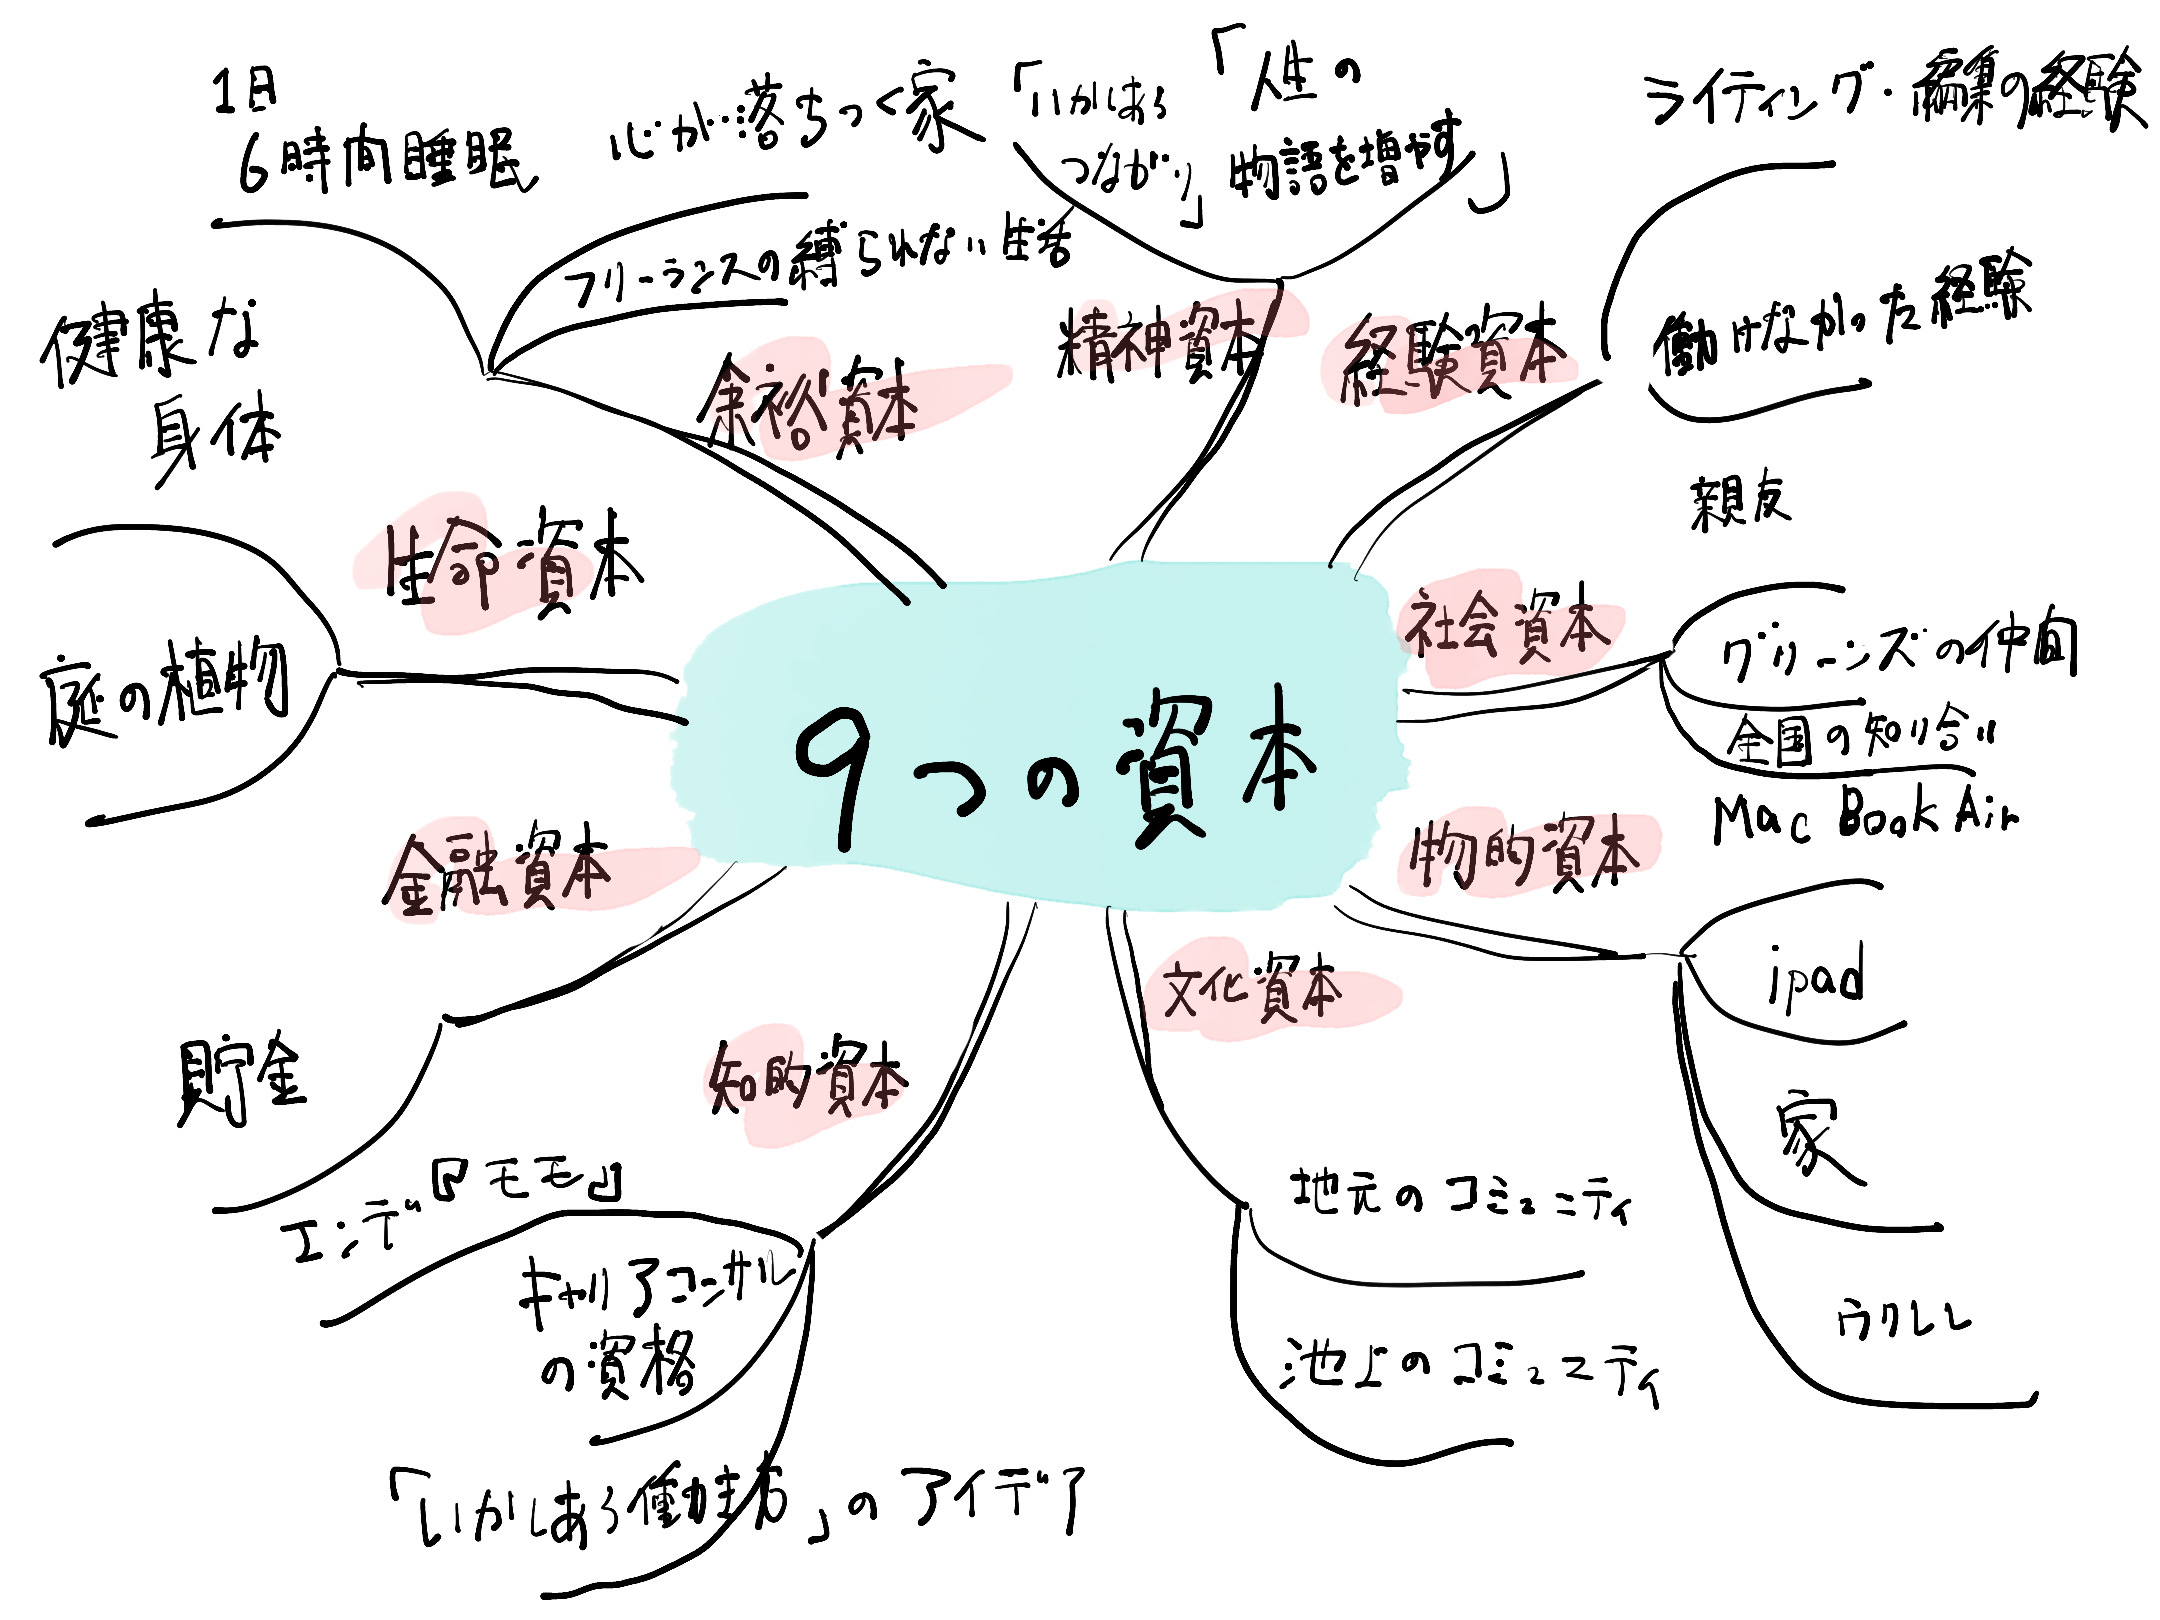 9つの資本
精神資本
「いかしあう
つながり」
「人生の
物語を増やす」
経験資本
ライティング・編集の経験
働けなかった経験
社会資本
親友
グリーンズの仲間
全国の知り合い
物的資本
Mac Book Air
ipad
家
ウクレレ
文化資本
地元のコミュニティ
池上のコミュニティ
知的資本
エンデ『モモ』
キャリアコンサル
の資格
「いかしあう働き方」のアイデア
金融資本
貯金
生命資本
健康な
身体
庭の植物
余裕資本
1日
6時間睡眠
心が落ちつく家
フリーランスの縛られない生活